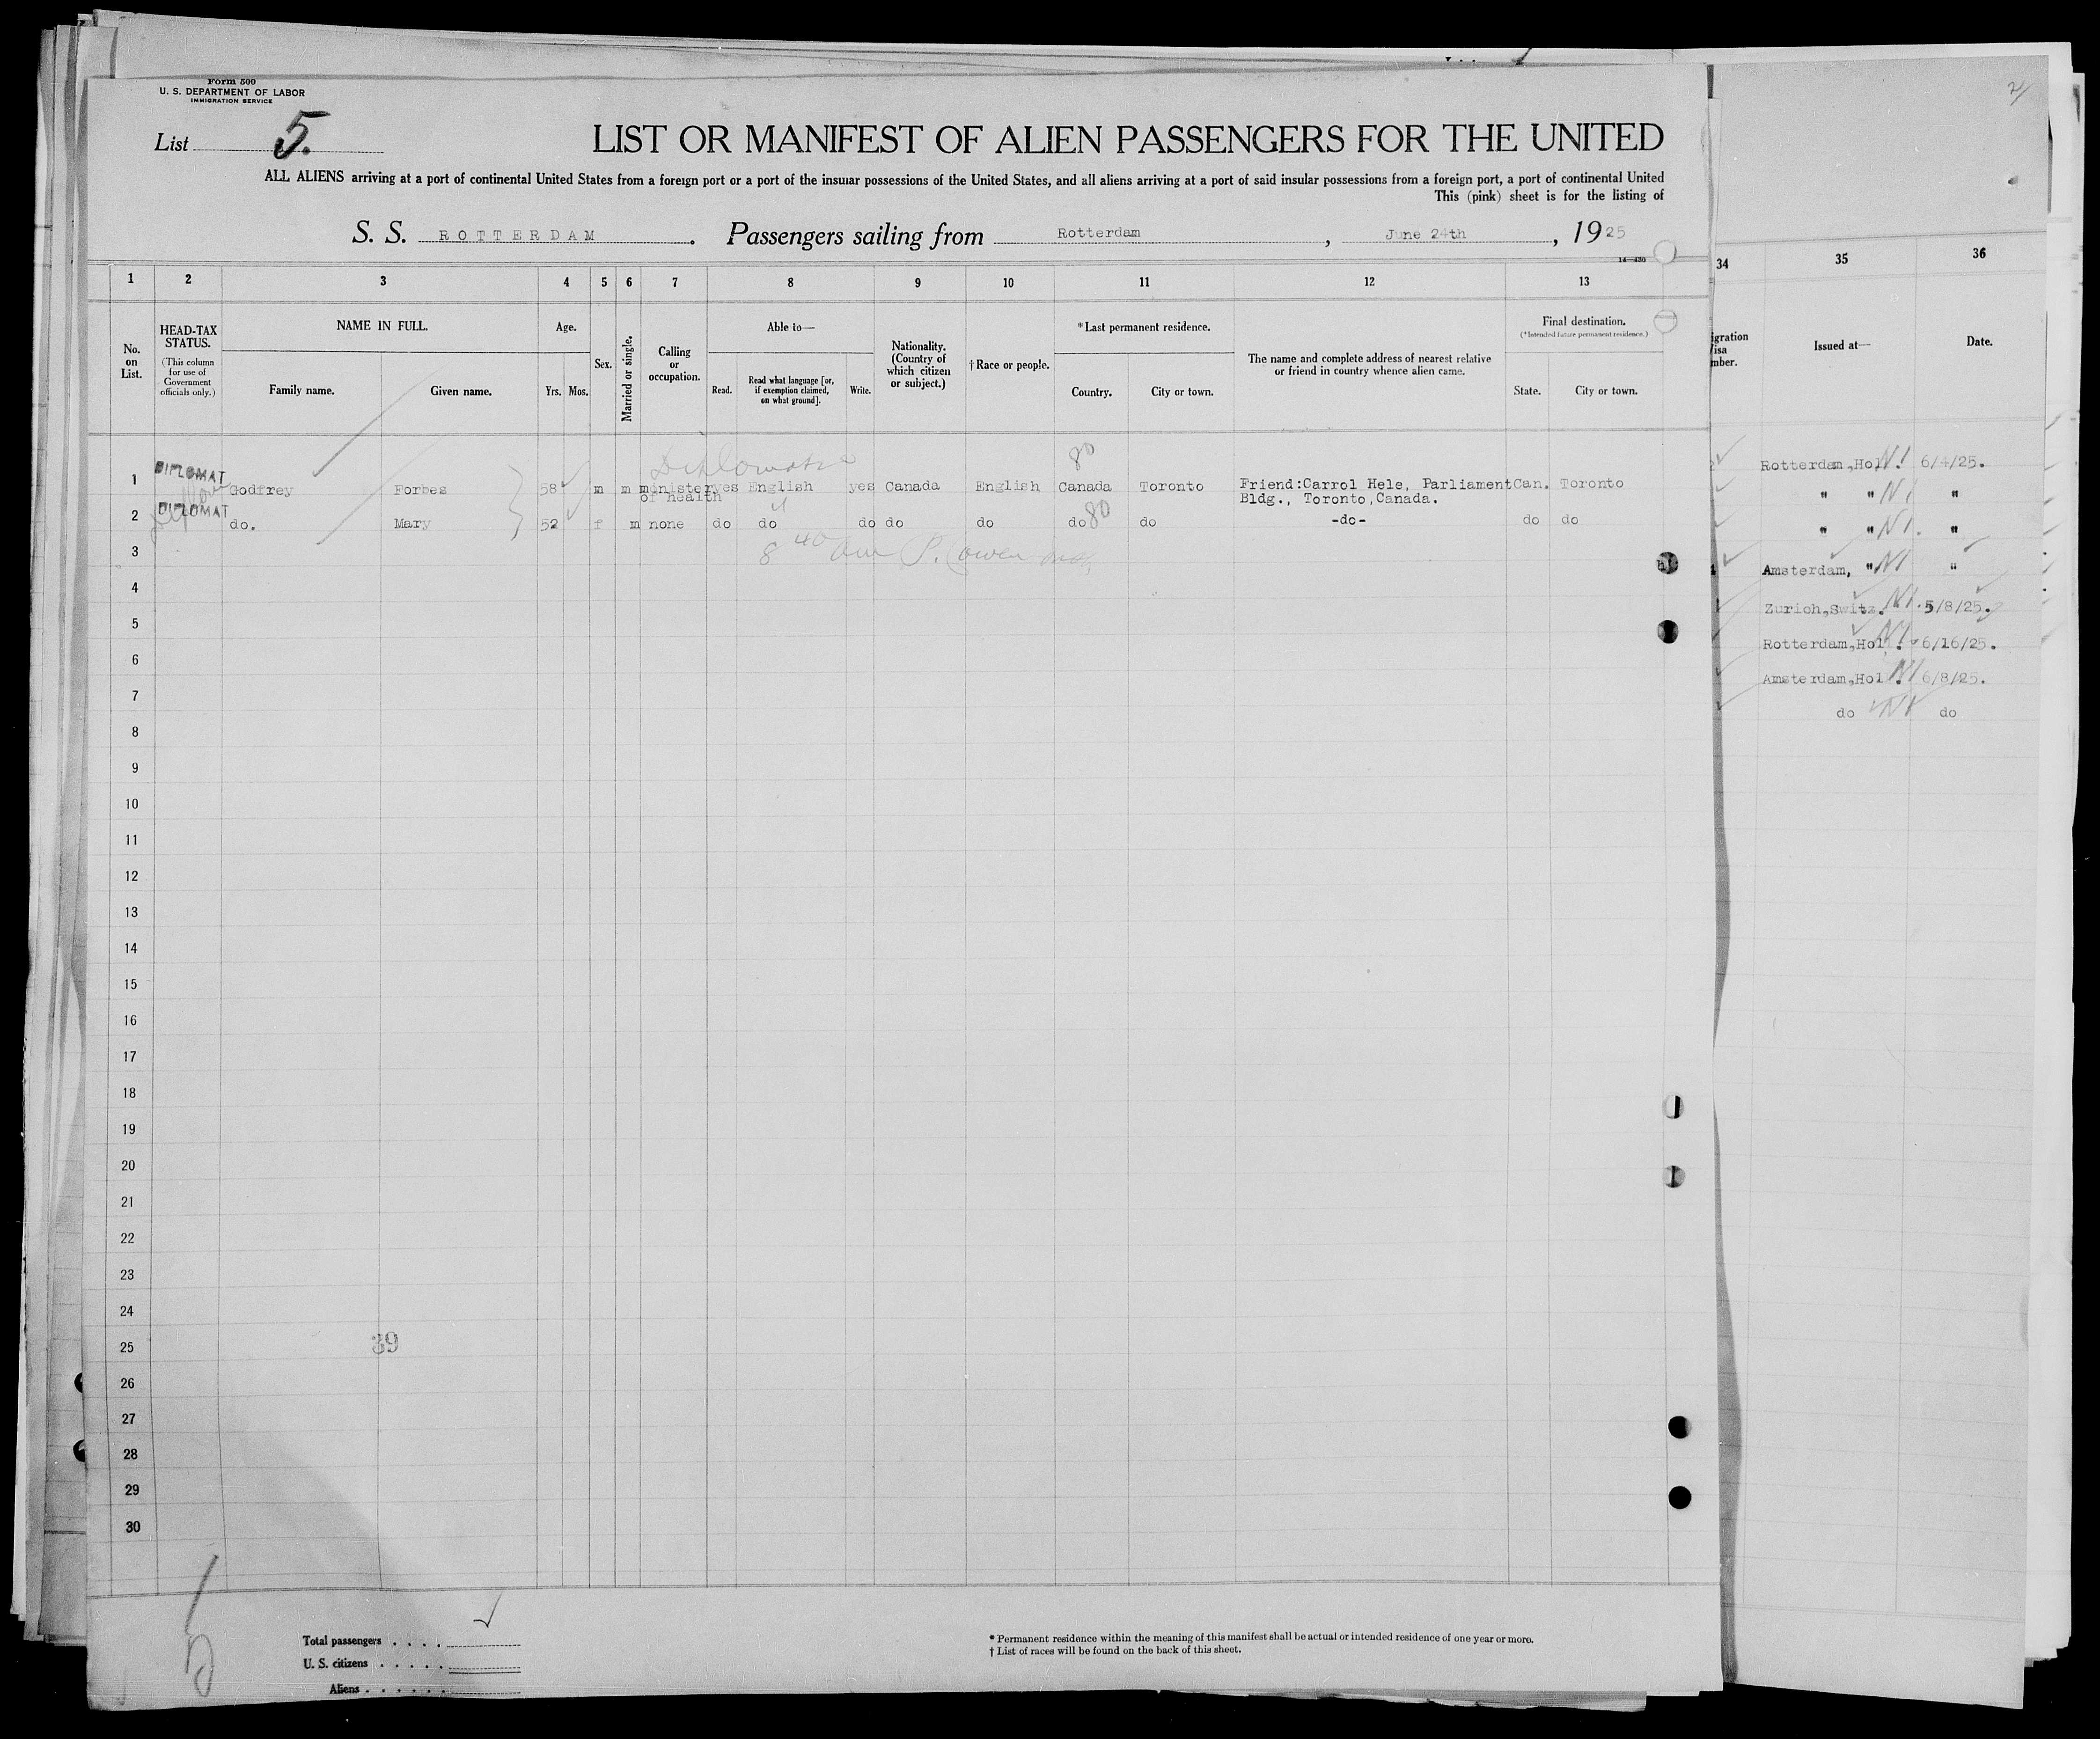 Form 500
U. S. DEPARTMENT OF LABOR
IMMIGRATION SERVICE
List 5.
LIST OR MANIFEST OF ALIEN PASSENGERS FOR THE UNITED
ALL ALIENS arriving at a port of continental United States from a foreign port or a port of the insular possessions of the United States, and all aliens arriving at a port of said insular possessions from a foreign port, a port of continental United
This (pink) sheet is for the listing of
S. S. ROTTERDAM. Passengers sailing from Rotterdam, June 24th, 1925
14—430
1 2 3 4 5 6 7 8 9 10 11 12 13
No. on List.
HEAD-TAX STATUS.
(This column for use of Government officials only.)
NAME IN FULL.
Family name. Given name.
Age.
Yrs. Mos.
Sex.
Married or single.
Calling or occupation.
Able to—
Read. Read what language [or, if exemption claimed, on what ground]. Write.
Nationality. (Country of which citizen or subject.)
†Race or people.
*Last permanent residence.
Country. City or town.
The name and complete address of nearest relative or friend in country whence alien came.
Final destination.
(*Intended future permanent residence.)
State. City or town.
Diplomats 80
1 DIPLOMAT Godfrey Forbes 58 m m minister of health yes English yes Canada English Canada Toronto Friend:Carrol Hele, Parliament Bldg., Toronto,Canada. Can. Toronto
2 DIPLOMAT do. Mary 52 f m none do do do do do do 80 do -do- do do
3 8 40 am P.
4
5
6
7
8
9
10
11
12
13
14
15
16
17
18
19
20
21
22
23
24
25 39
26
27
28
29
30
Total passengers
U. S. citizens
Aliens
* Permanent residence within the meaning of this manifest shall be actual or intended residence of one year or more.
† List of races will be found on the back of this sheet.
2
34 35 36
igration
isa
mber.
Issued at— Date.
Rotterdam,Hol. N1 6/4/25.
" " N1 "
" " N1. "
Amsterdam, " N1 "
Zurich,Switz. N1. 5/8/25.
Rotterdam,Hol. N1 6/16/25.
Amsterdam,Hol. N1 6/8/25.
do N1 do